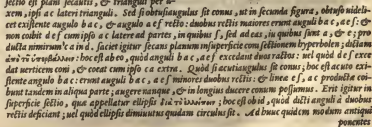 rem, ipsi ac lateri trianguli. Sed si obtusiangulus sit conus, ut in secunda figura, obtuso uidelicet existente angulo bac, & angulo aef recto: duobus rectis maiores erunt anguli bac, aef: &
non coibit def cum ipso ac latere ad partes, in quibus f, sed ad eas, in quibus sunt a, & e; producta nimirum ca ind. faciet igitur secans planum in superficie coni sectionem hyperbolen; dictam
ἀπὸ τοῦ ὑπερβάλλειν: hoc est ab eo, quòd anguli bac, aef excedant duos rectos: uel quòd de excedat uerticem coni, & coeat cum ipso ca extra. Quòd si acutiangulus sit conus; hoc est acuto existente angulo bac: erunt anguli bac, aef minores duobus rectis: & lineæ ef, ac productæ coibunt tandem in aliqua parte; augere nanque, & in longius ducere conum possumus. Erit igitur in
superficie sectio, quæ appellatur ellipsis διὰ τὸ ἐλλείπειν; hoc est ob id, quòd dicti anguli à duobus
rectis deficiant; uel quòd ellipsis diminutus quædam circulus sit. Ad hunc quidem modum antiqui
ponentes